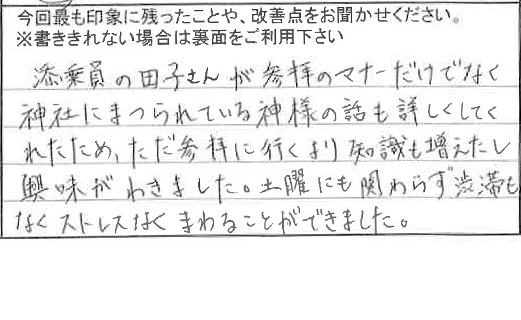 今回最も印象に残ったことや、改善点をお聞かせください。
※書ききれない場合は裏面をご利用下さい
添乗員の田子さんが参拝のマナーだけでなく
神社にまつられている神様の話も詳しくしてく
れたため、ただ参拝に行くより知識も増えたし
興味がわきました。土曜にも関わらず渋滞も
なくストレスなくまわることができました。